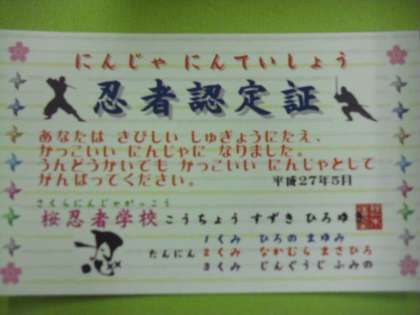 にんじゃ にんていしょう
忍者認定証
あなたは きびしい しゅぎょうにたえ、
かっこいい にんじゃに なりました。
うんどうかいでも かっこいい にんじゃとして
がんばってください。
平成27年5月
さくらにんじゃがっこう
桜忍者学校 こうちょう すずき ひろゆき
たんにん
1くみ ひろの まゆみ
2くみ なかむら まさひろ
3くみ じんぐうじ ふみの
忍